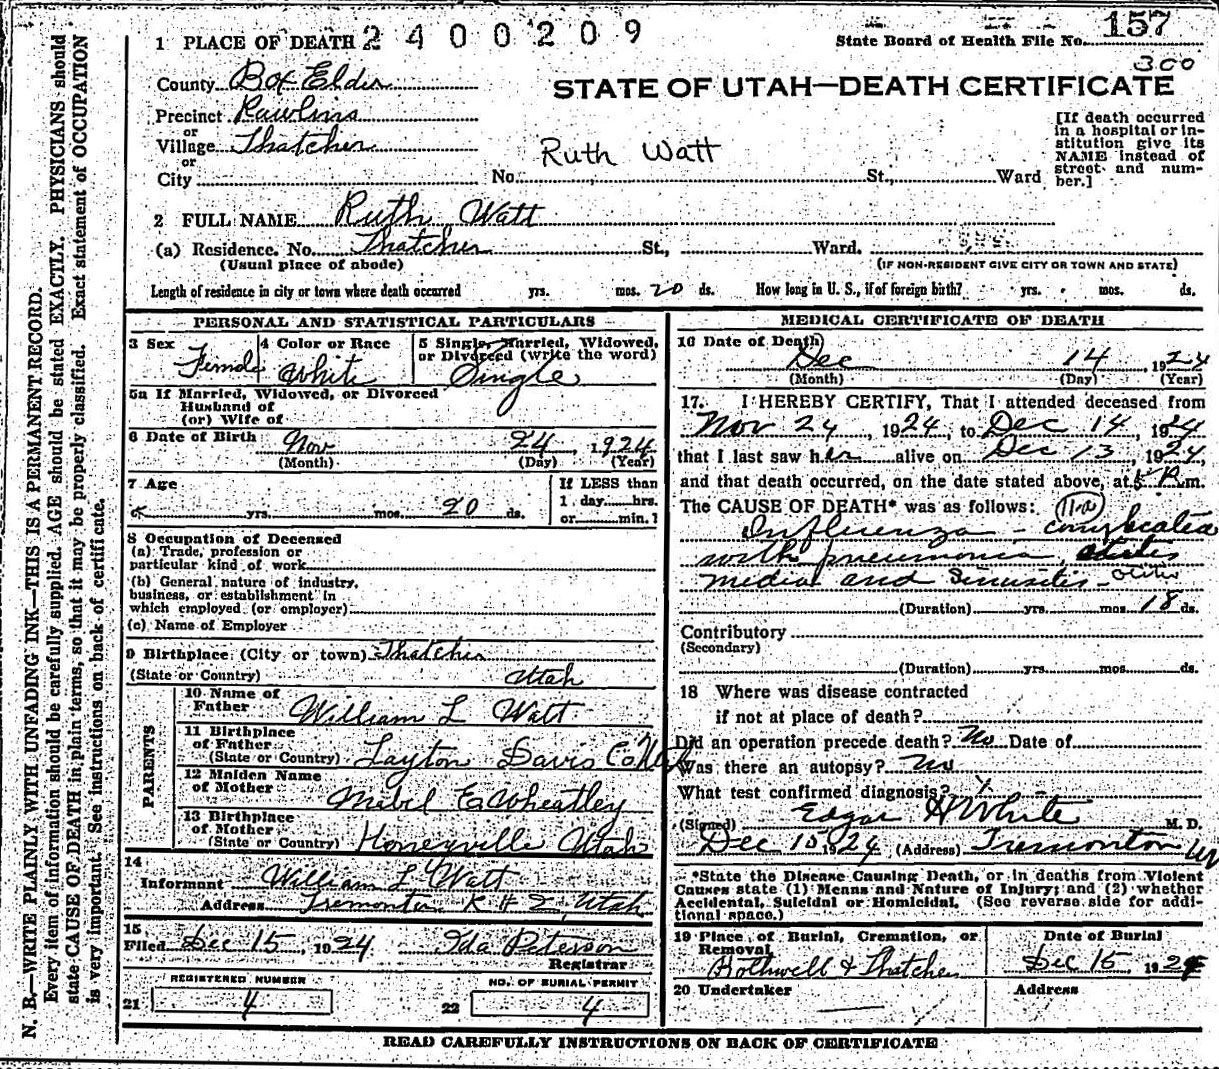 N. B.—WRITE PLAINLY WITH UNFADING INK—THIS IS A PERMANENT RECORD.
Every item of information should be carefully supplied. AGE should be stated EXACTLY. PHYSICIANS should
state CAUSE OF DEATH in plain terms, so that it may be properly classified. Exact statement of OCCUPATION
is very important. See instructions on back of certificate.
1 PLACE OF DEATH 2400209
State Board of Health File No. 157
300
County Box Elder
STATE OF UTAH—DEATH CERTIFICATE
Precinct Rawlins
or
Village Thatcher
or
City
Ruth Watt
No. St., Ward
[If death occurred
in a hospital or in-
stitution give its
NAME instead of
street and num-
ber.]
2 FULL NAME Ruth Watt
(a) Residence. No. Thatcher St., Ward.
(Usual place of abode)
(IF NON-RESIDENT GIVE CITY OR TOWN AND STATE)
Length of residence in city or town where death occurred yrs. mos. 20 ds. How long in U. S., if of foreign birth? yrs. mos. ds.
PERSONAL AND STATISTICAL PARTICULARS
3 Sex Female
4 Color or Race White
5 Single, Married, Widowed,
or Divorced (write the word)
Single
5a If Married, Widowed, or Divorced
Husband of
(or) Wife of
6 Date of Birth Nov 24, 1924
(Month) (Day) (Year)
7 Age
yrs. mos. 20 ds.
If LESS than
1 day hrs.
or min.
8 Occupation of Deceased
(a) Trade, profession or
particular kind of work
(b) General nature of industry,
business, or establishment in
which employed (or employer)
(c) Name of Employer
9 Birthplace (City or town) Thatcher
(State or Country) Utah
PARENTS
10 Name of
Father William L Watt
11 Birthplace
of Father
(State or Country) Layton Davis Co Utah
12 Maiden Name
of Mother Mabel E Wheatley
13 Birthplace
of Mother
(State or Country) Honeyville Utah
14
Informant William L Watt
Address Tremonton R # 2, Utah
15
Filed Dec 15, 1924 Ida Peterson
Registrar
REGISTERED NUMBER
21 4
NO. OF BURIAL PERMIT
22 4
MEDICAL CERTIFICATE OF DEATH
16 Date of Death
Dec 14, 1924
(Month) (Day) (Year)
17. I HEREBY CERTIFY, That I attended deceased from
Nov 24, 1924, to Dec 14, 1924
that I last saw her alive on Dec 13, 1924,
and that death occurred, on the date stated above, at 5 P.m.
The CAUSE OF DEATH* was as follows: 11a
Influenza - complicated
with pneumonia, otitis
media and Sinusitis - Otitis
(Duration) yrs. mos. 18 ds.
Contributory
(Secondary)
(Duration) yrs. mos. ds.
18 Where was disease contracted
if not at place of death?
Did an operation precede death? No Date of
Was there an autopsy? No
What test confirmed diagnosis?
(Signed) Edgar H White M. D.
Dec 15 1924 (Address) Tremonton Ut
*State the Disease Causing Death, or in deaths from Violent
Causes state (1) Means and Nature of Injury; and (2) whether
Accidental, Suicidal or Homicidal. (See reverse side for addi-
tional space.)
19 Place of Burial, Cremation, or
Removal
Bothwell & Thatcher
Date of Burial
Dec 15, 1924
20 Undertaker
Address
READ CAREFULLY INSTRUCTIONS ON BACK OF CERTIFICATE